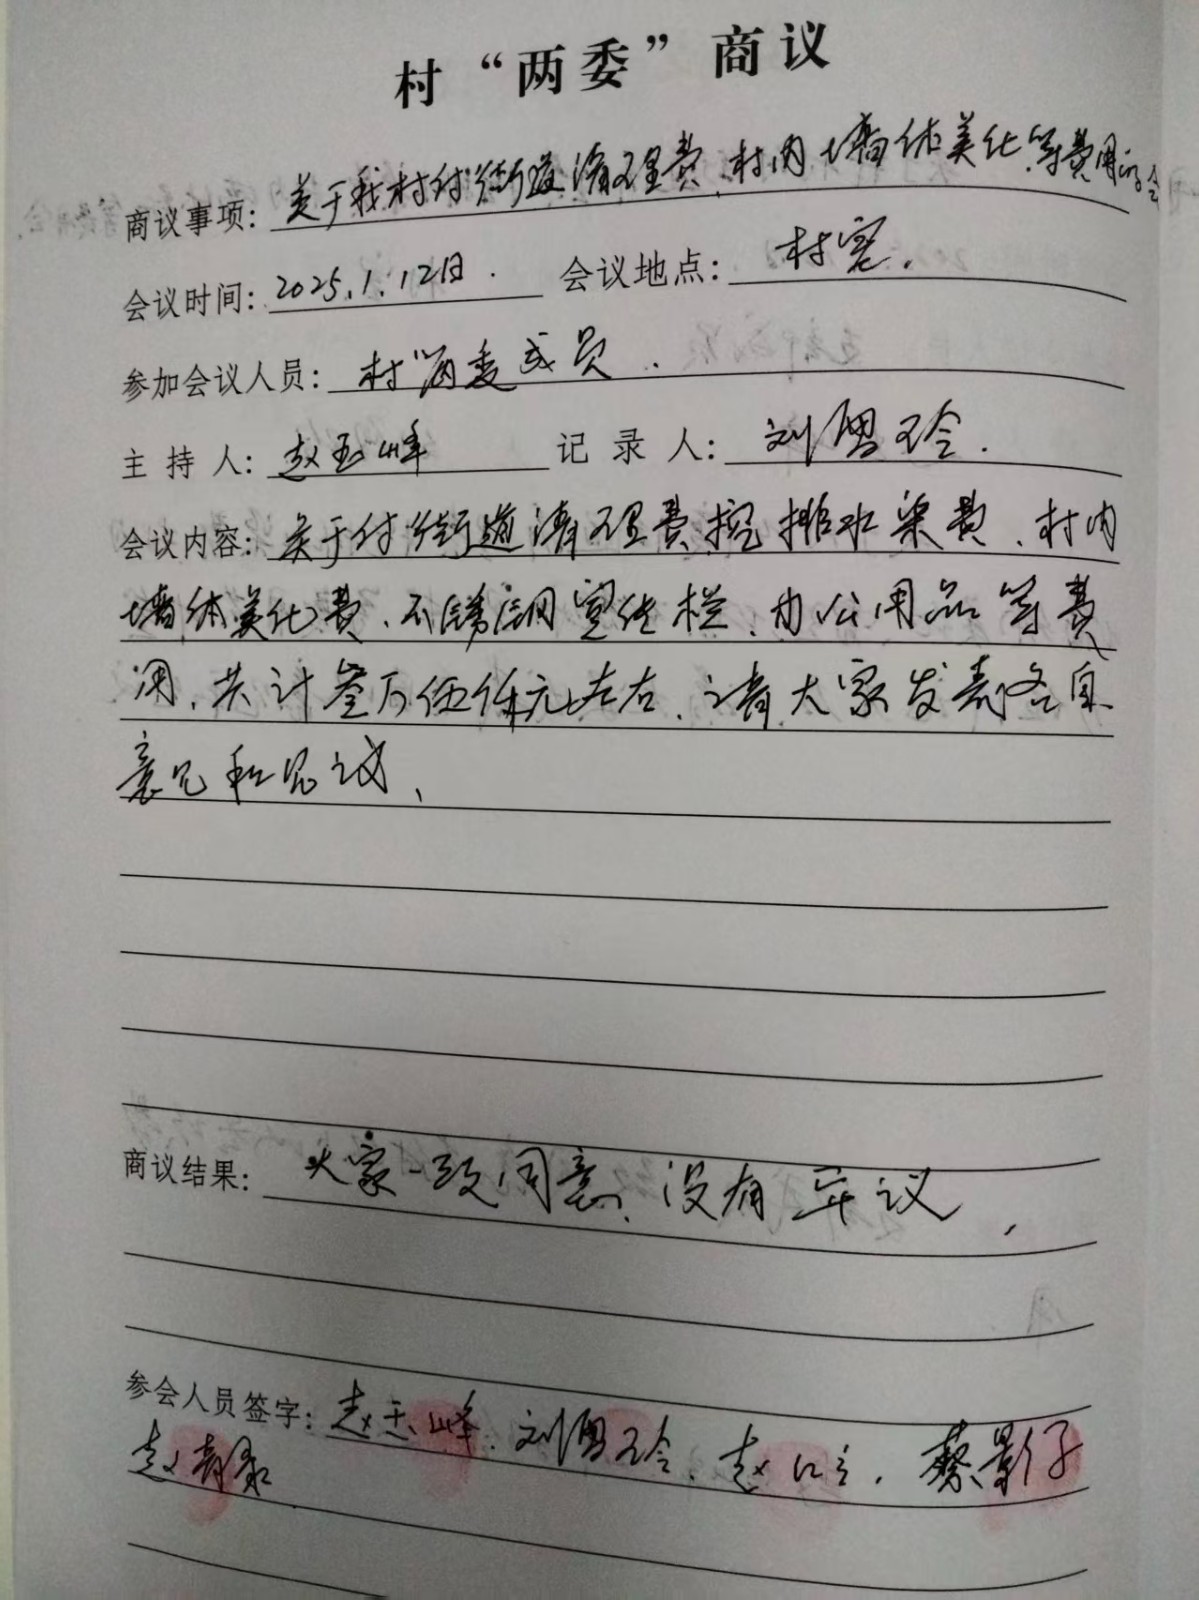 村“两委”商议
商议事项：关于我村付街道清理费、村内墙体美化等费用的会
会议时间：2025.1.12日. 会议地点：村室.
参加会议人员：村“两委成员.
主持人：赵玉峰 记录人：刘雪玲.
会议内容：关于付街道清理费挖排水渠费、村内
墙体美化费、不锈钢宣传栏、办公用品等费
用，共计叁万伍仟元左右，请大家发表各自
意见和见议、
商议结果：大家一致同意、没有异议，
参会人员签字：赵玉峰、刘雪玲、赵 蔡影
赵